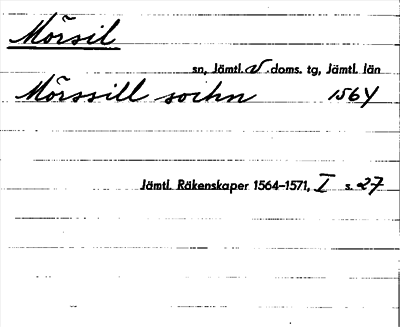 Mörsil
sn, Jämtl. V doms. tg, Jämtl. län
Mörssill sochn 1564
Jämtl. Räkenskaper 1564–1571, I s. 27